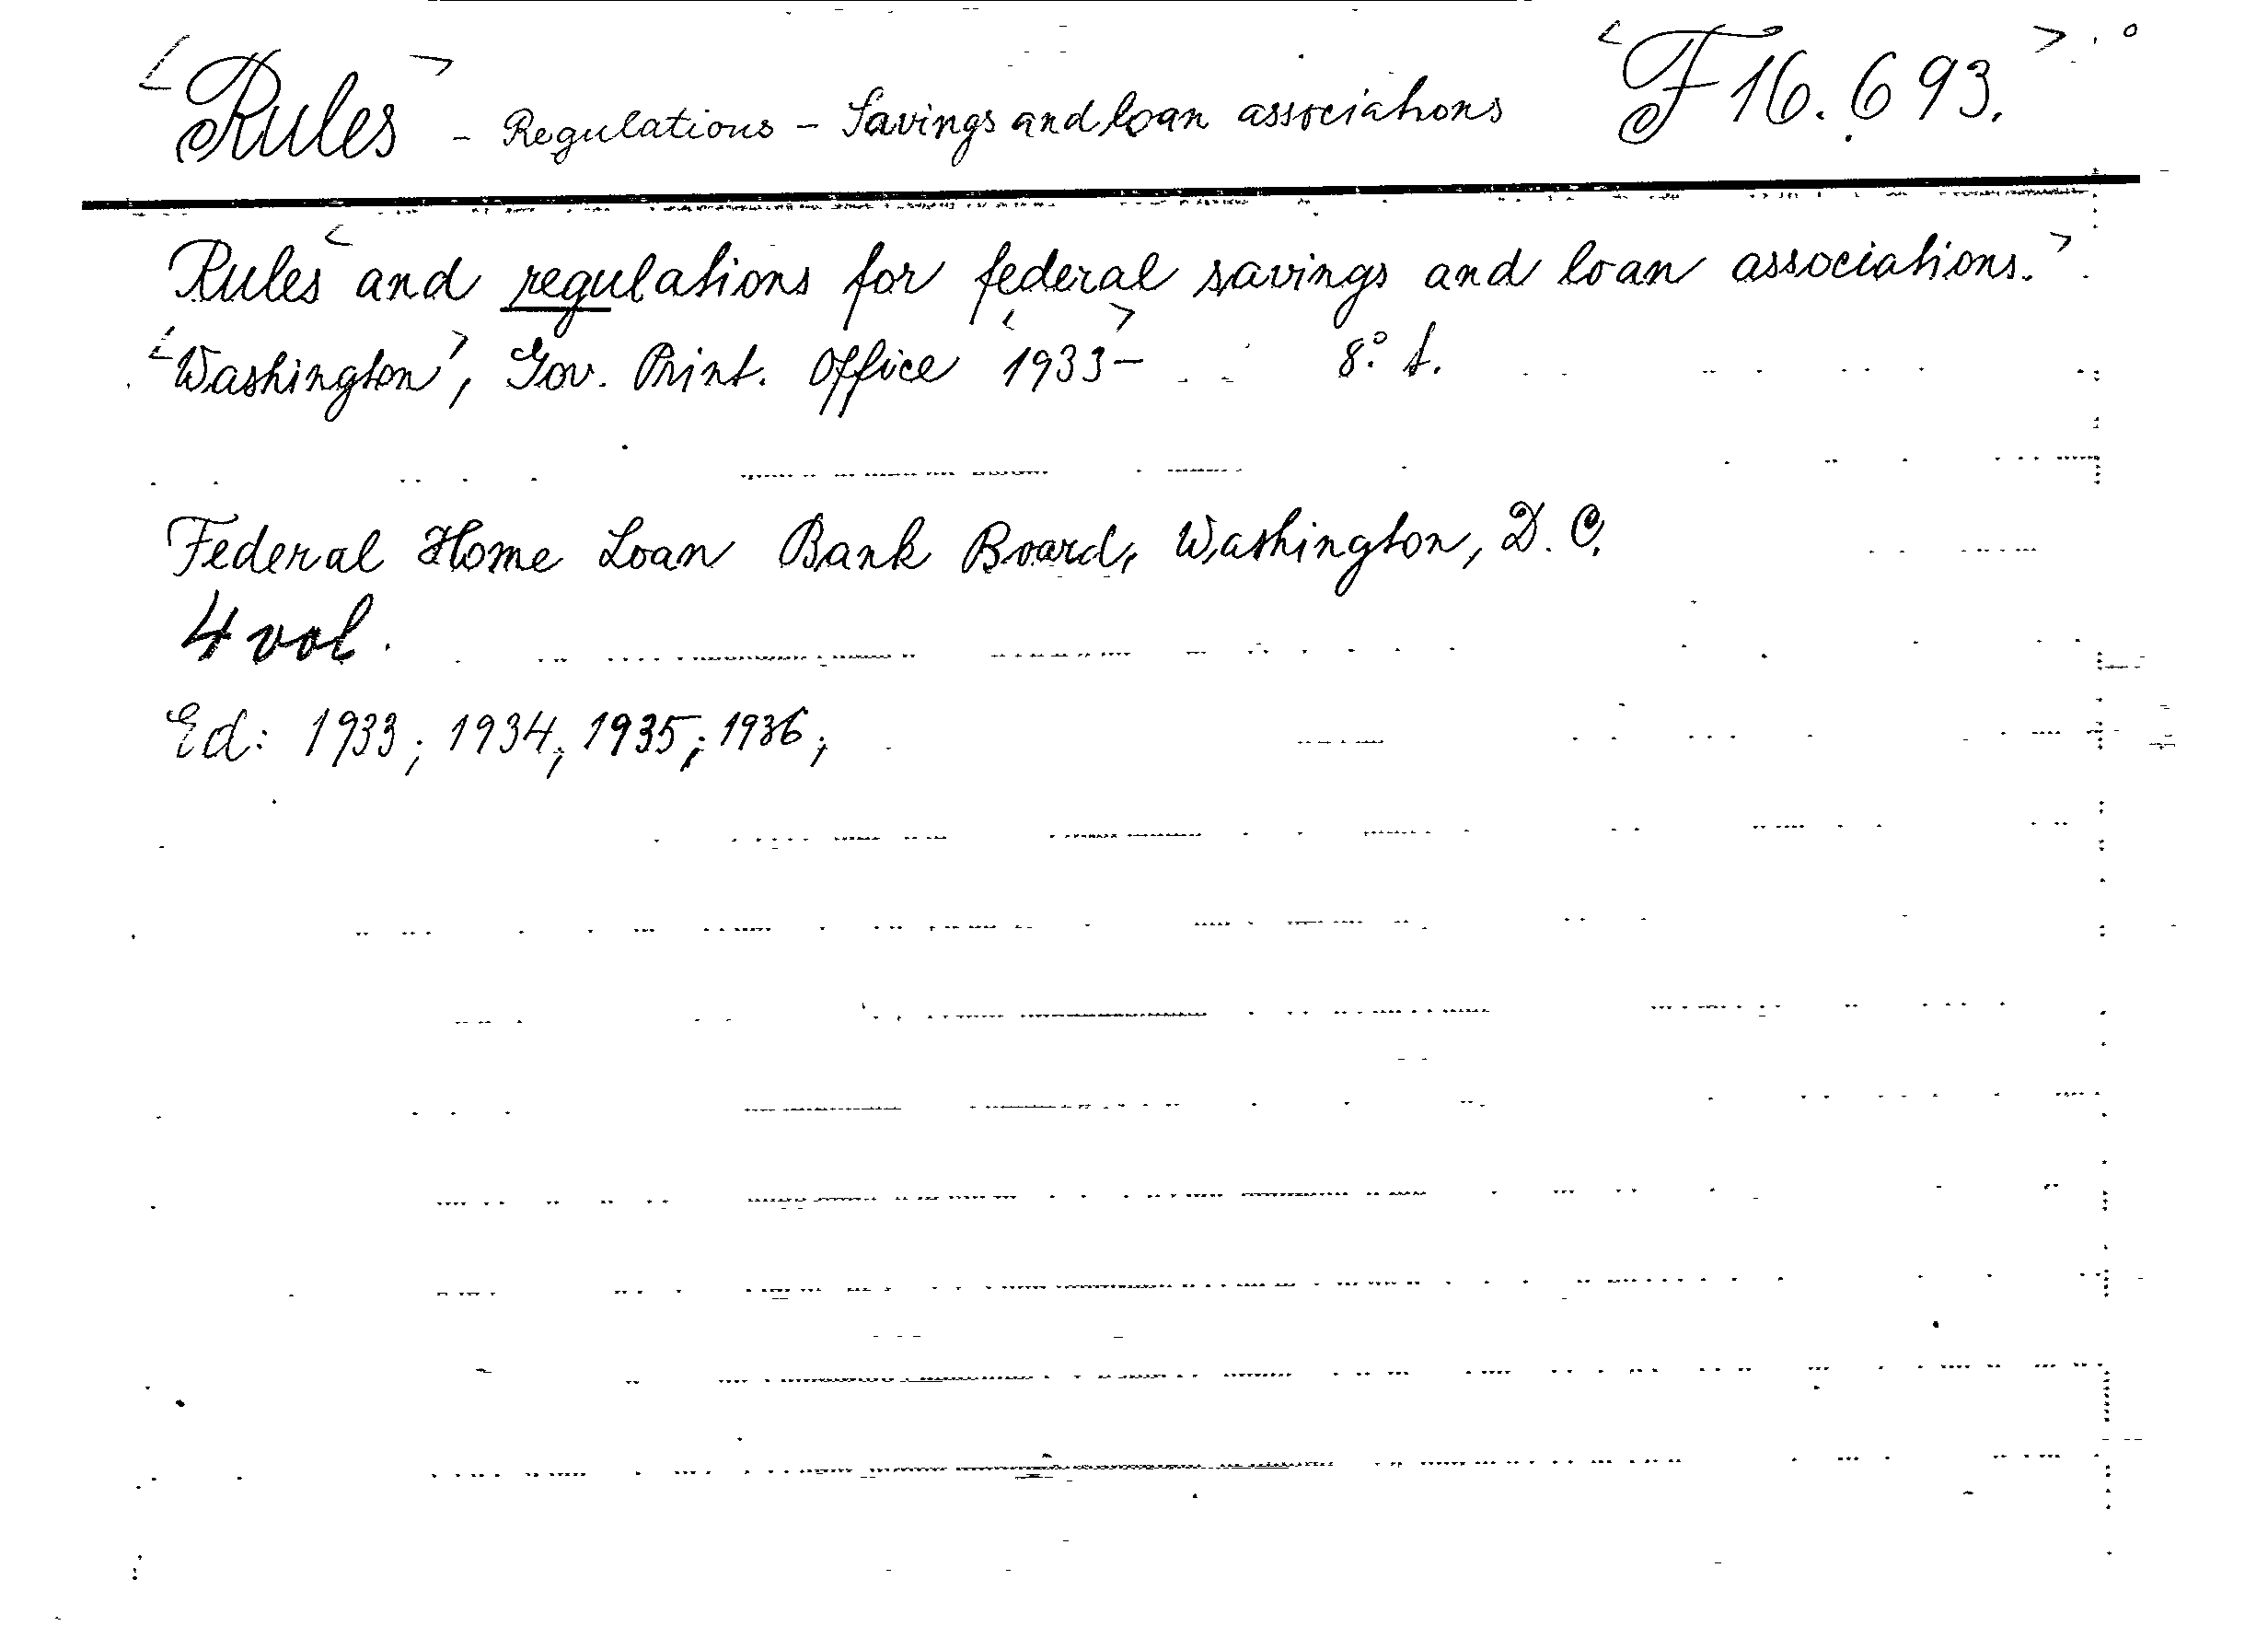 <Rules> - Regulations - Savings and loan associations <F 16.693.>
Rules <and regulations for federal savings and loan associations.>
<Washington>, Gov. Print. Office <1933> - 8° t.
Federal Home Loan Bank Board, Washington, D. C.
4 vol.
Ed: 1933; 1934; 1935; 1936;